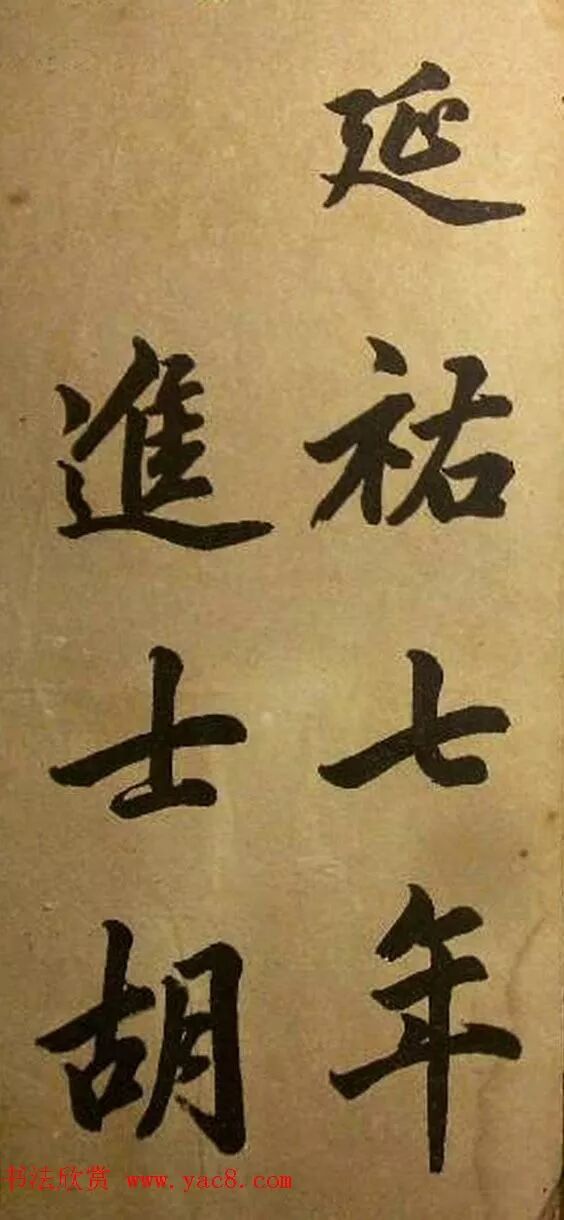 延祐七年
進士胡
书法欣赏 www.yac8.com